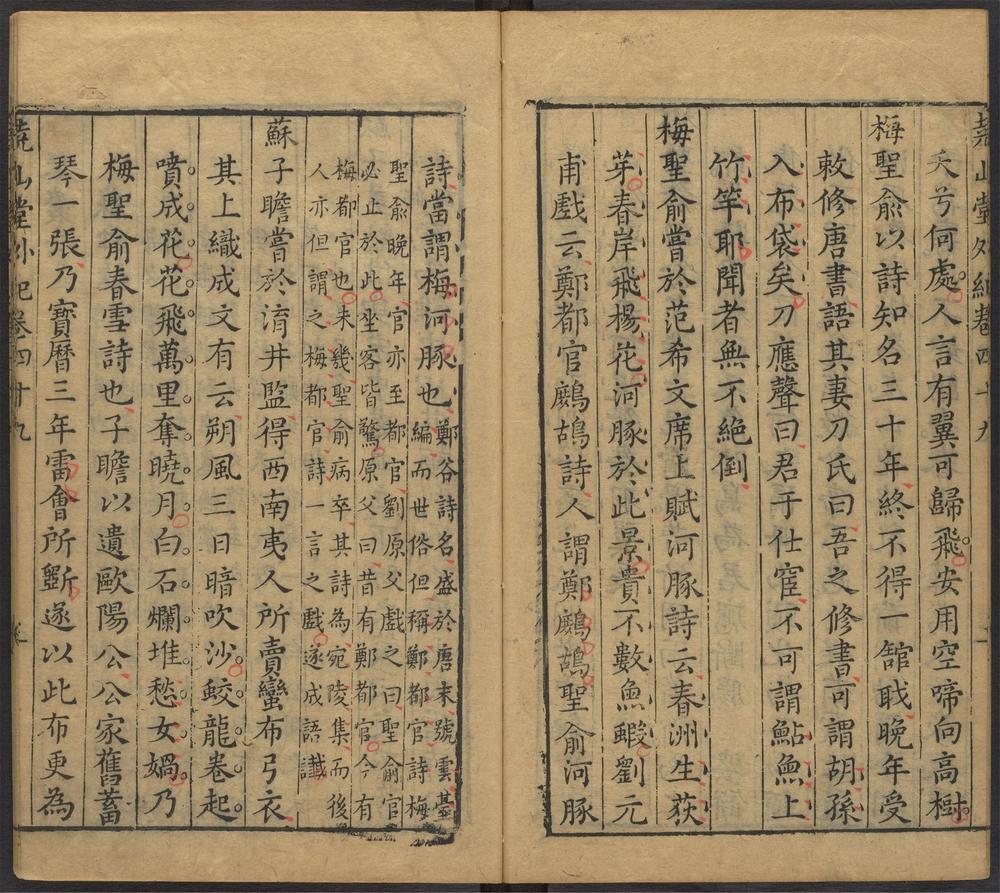 堯山堂外紀卷四十九
夭兮何處人言有翼可歸飛安用空啼向高樹
梅聖俞以詩知名三十年終不得一舘職晚年受
敕修唐書語其妻刀氏曰吾之修書可謂胡孫
入布袋矣刀應聲曰君于仕宦不可謂鮎魚上
竹竿耶聞者無不絕倒
梅聖俞嘗於范希文席上賦河豚詩云春洲生荻
芽春岸飛楊花河豚於此景貴不數魚鰕劉元
甫戲云鄭都官鷓鴣詩人謂鄭鷓鴣聖俞河豚
詩當謂梅河豚也
鄭谷詩名盛於唐末號雲臺
編而世俗但稱鄭都官詩梅
聖俞晚年官亦至都官劉原父戲之曰聖俞官
必止於此坐客皆驚原父曰昔有鄭都官今有
梅都官也未幾聖俞病卒其詩為宛陵集而後
人亦但謂之梅都官詩一言之戲遂成語讖
蘇子瞻嘗於淯井監得西南夷人所賣蠻布弓衣
其上織成文有云朔風三日暗吹沙蛟龍卷起
噴成花花飛萬里奪曉月白石爛堆愁女媧乃
梅聖俞春雪詩也子瞻以遺歐陽公公家舊蓄
琴一張乃寶曆三年雷會所斵遂以此布更為
堯山堂外紀卷四十九